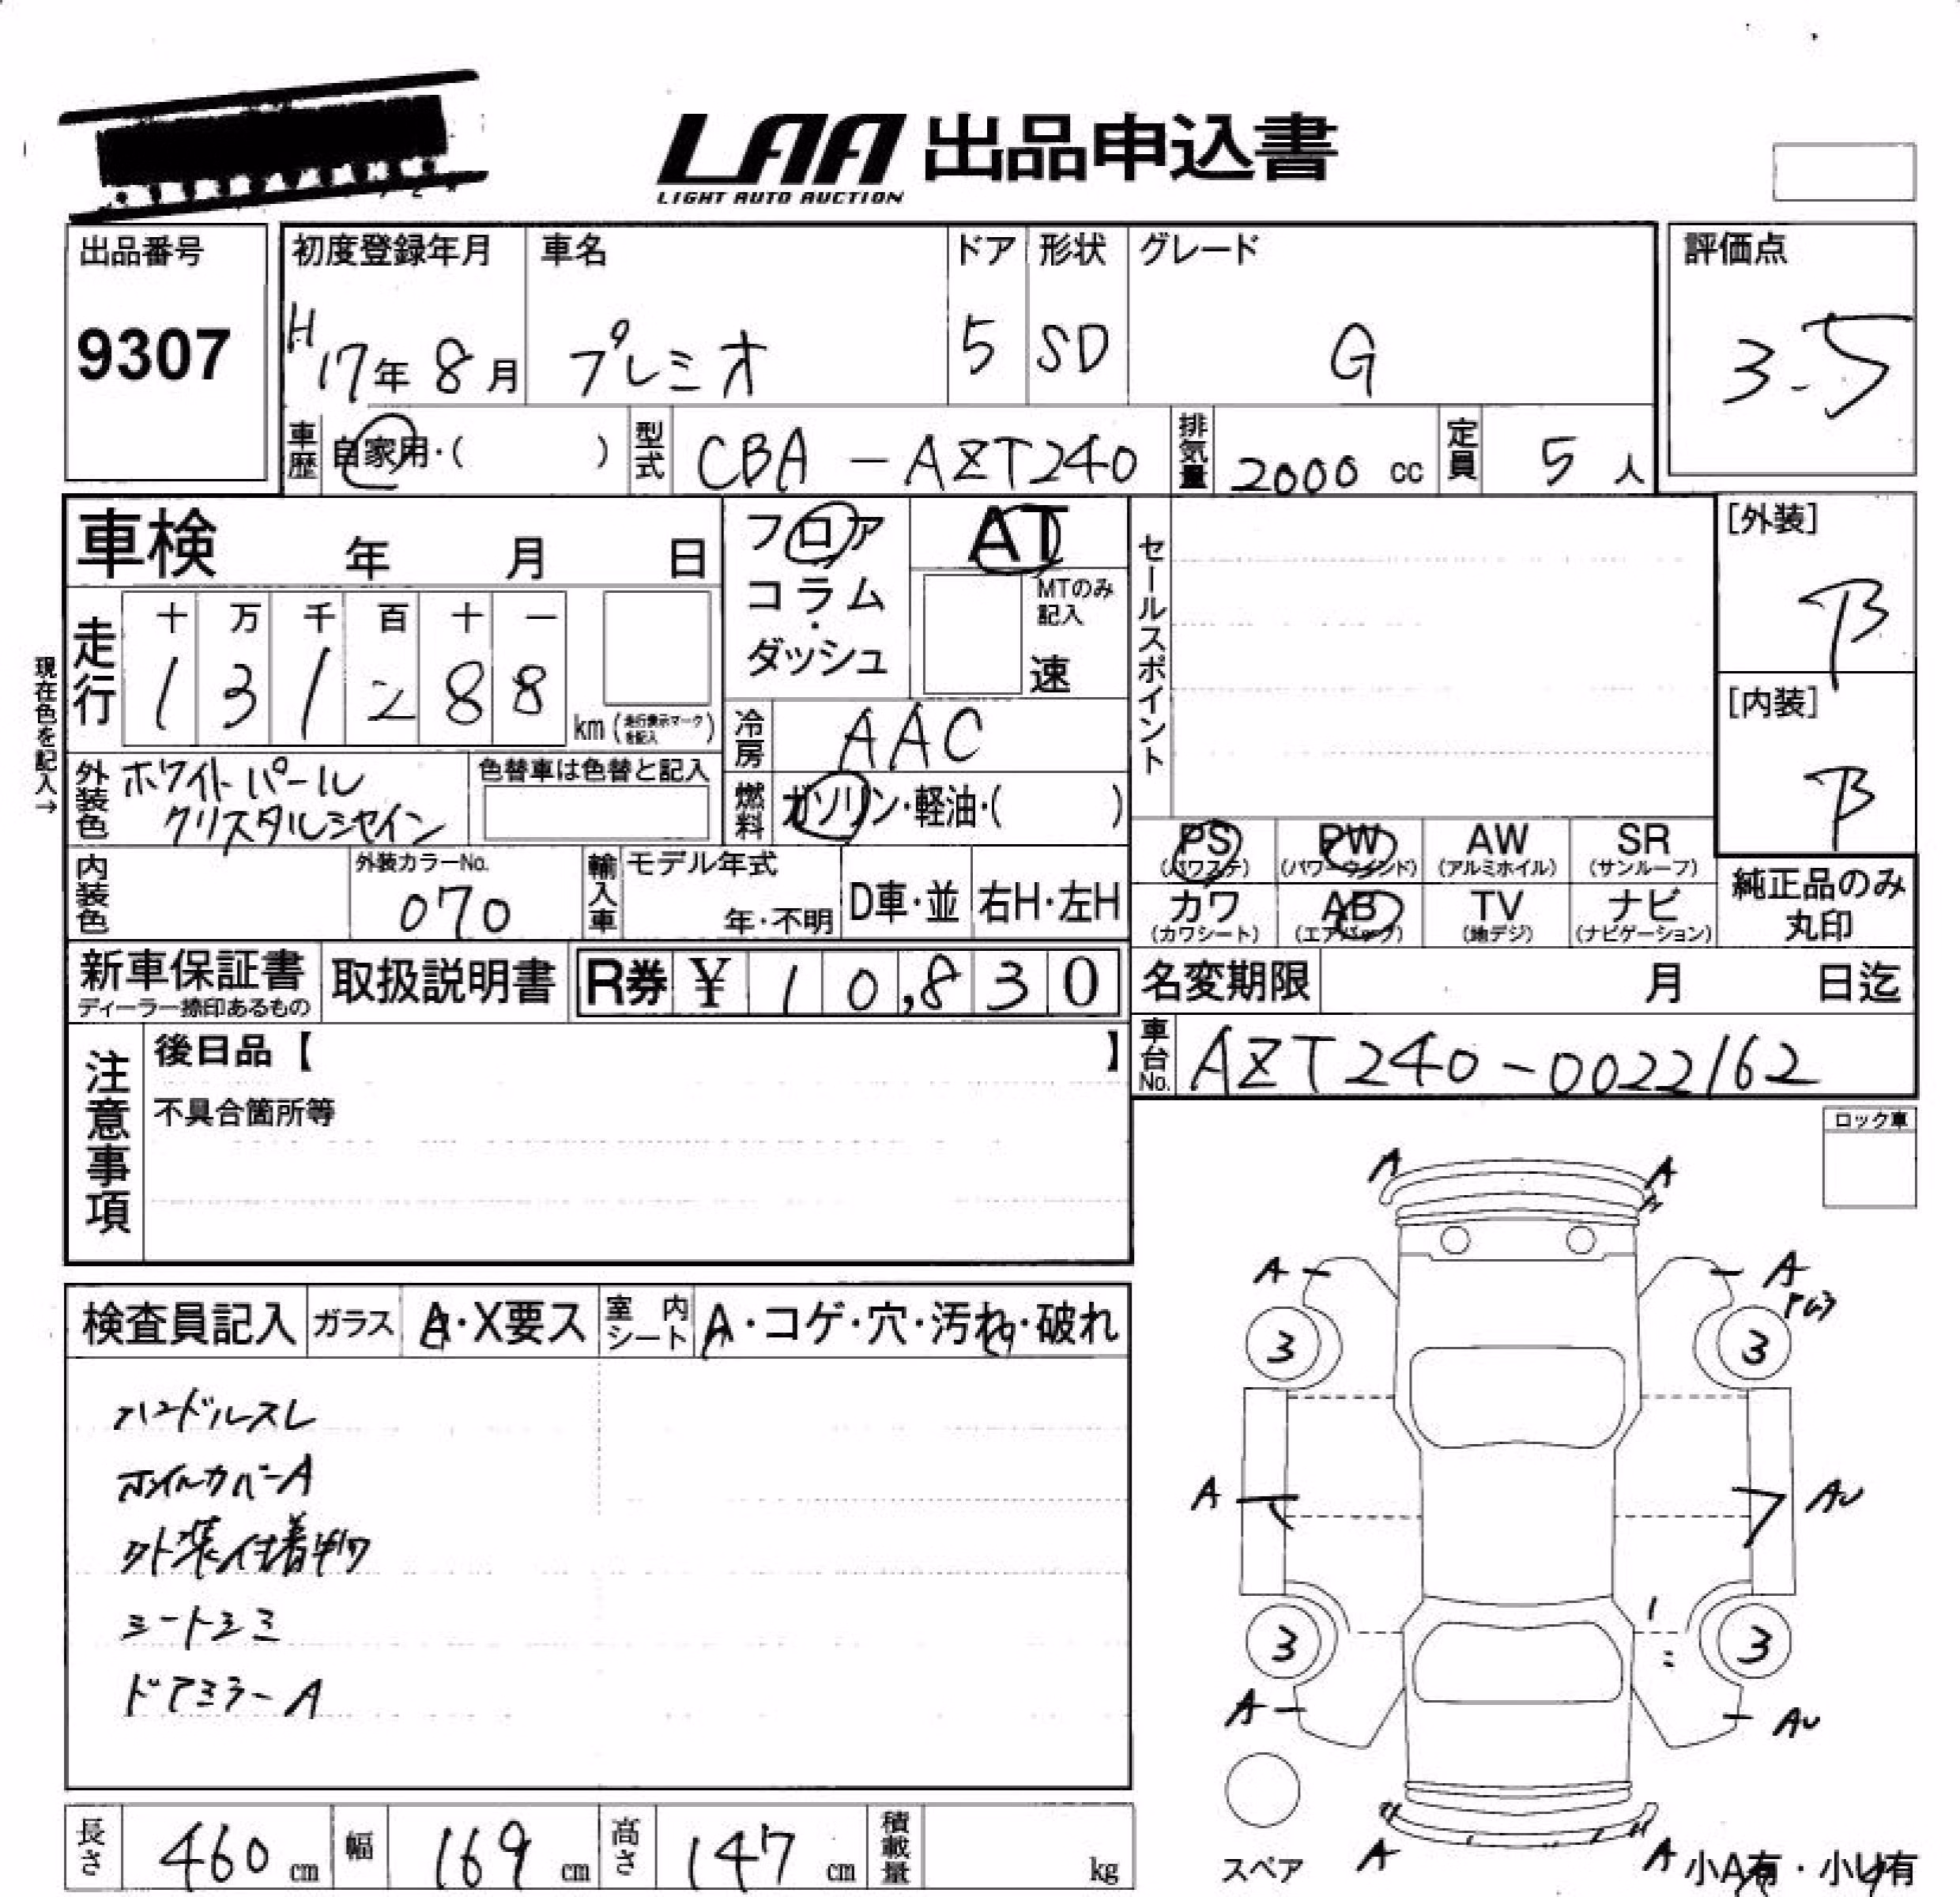 LAA 出品申込書
LIGHT AUTO AUCTION
出品番号
9307
初度登録年月
H17年 8月
車名
プレミオ
ドア
5
形状
SD
グレード
G
評価点
3.5
車歴
自家用・( )
型式
CBA-AZT240
排気量
2000 cc
定員
5 人
車検 年 月 日
フロア
コラム
・
ダッシュ
AT
MTのみ
記入
速
セールスポイント
[外装]
B
[内装]
B
現在色を記入→
走行
十 万 千 百 十 一
1 3 1 2 8 8
km (走行表示マークを記入)
冷房
AAC
外装色
ホワイトパール
クリスタルシャイン
色替車は色替と記入
燃料
ガソリン・軽油・( )
PS
(パワステ)
PW
(パワーウインド)
AW
(アルミホイル)
SR
(サンルーフ)
内装色
外装カラーNo.
070
輸入車
モデル年式
年・不明
D車・並
右H・左H
カワ
(カワシート)
AB
(エアバッグ)
TV
(地デジ)
ナビ
(ナビゲーション)
純正品のみ
丸印
新車保証書
ディーラー捺印あるもの
取扱説明書
R券 ¥ 10,830
名変期限 月 日迄
車台No.
AZT240-0022162
注意事項
後日品【 】
不具合箇所等
ロック車
検査員記入
ガラス
A・X要ス
室内シート
A・コゲ・穴・汚れ・破れ
ハンドルスレ
ホイルカバーA
外装付着物
シートシミ
ドアミラーA
A
A
A
A
3
3
A
AU
3
3
A
AU
スペア
A
A
小A有・小U有
長さ
460 cm
幅
169 cm
高さ
147 cm
積載量
kg